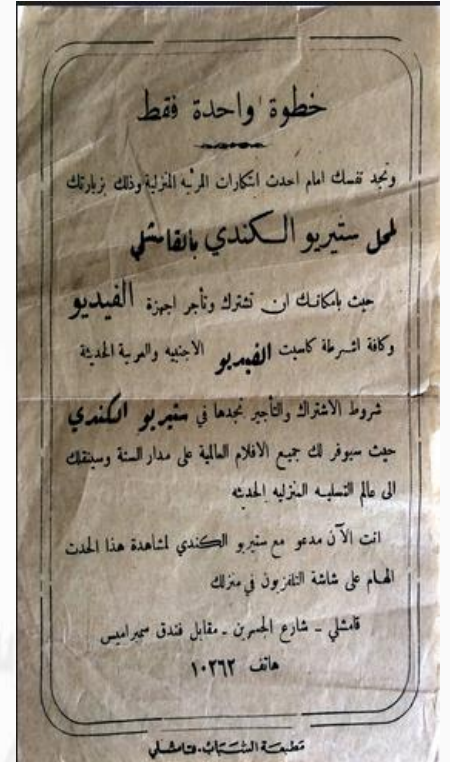 خطوة واحدة فقط
وتجد نفسك امام احدث ابتكارات المرئيه المنزلية وذلك بزيارتك
لمحل ستيريو الكندي بالقامشلي
حيث بامكانك ان تشترك وتأجر اجهزة الفيديو
وكافة اشرطة كاسيت الفيديو الاجنبيه والعربية الحديثة
شروط الاشتراك والتأجير تجدها في ستيريو الكندي
حيث سيوفر لك جميع الافلام العالمية على مدار السنة وسينقلك
الى عالم التسليه المنزليه الحديثه
انت الآن مدعو مع ستيريو الكندي لمشاهدة هذا الحدث
الهام على شاشة التلفزيون في منزلك
قامشلي - شارع الجسرين - مقابل فندق سميراميس
هاتف ١٠٢٦٢
مطبعة الشباب - قامشلي